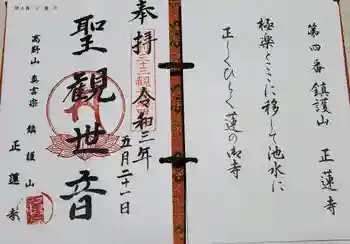 第四番 鎮護山 正蓮寺
極楽をここに移して池水に
正しくひらく蓮の御寺
奉拝
令和三年
五月二十一日
聖観世音
高野山 真言宗 鎮護山
正蓮寺